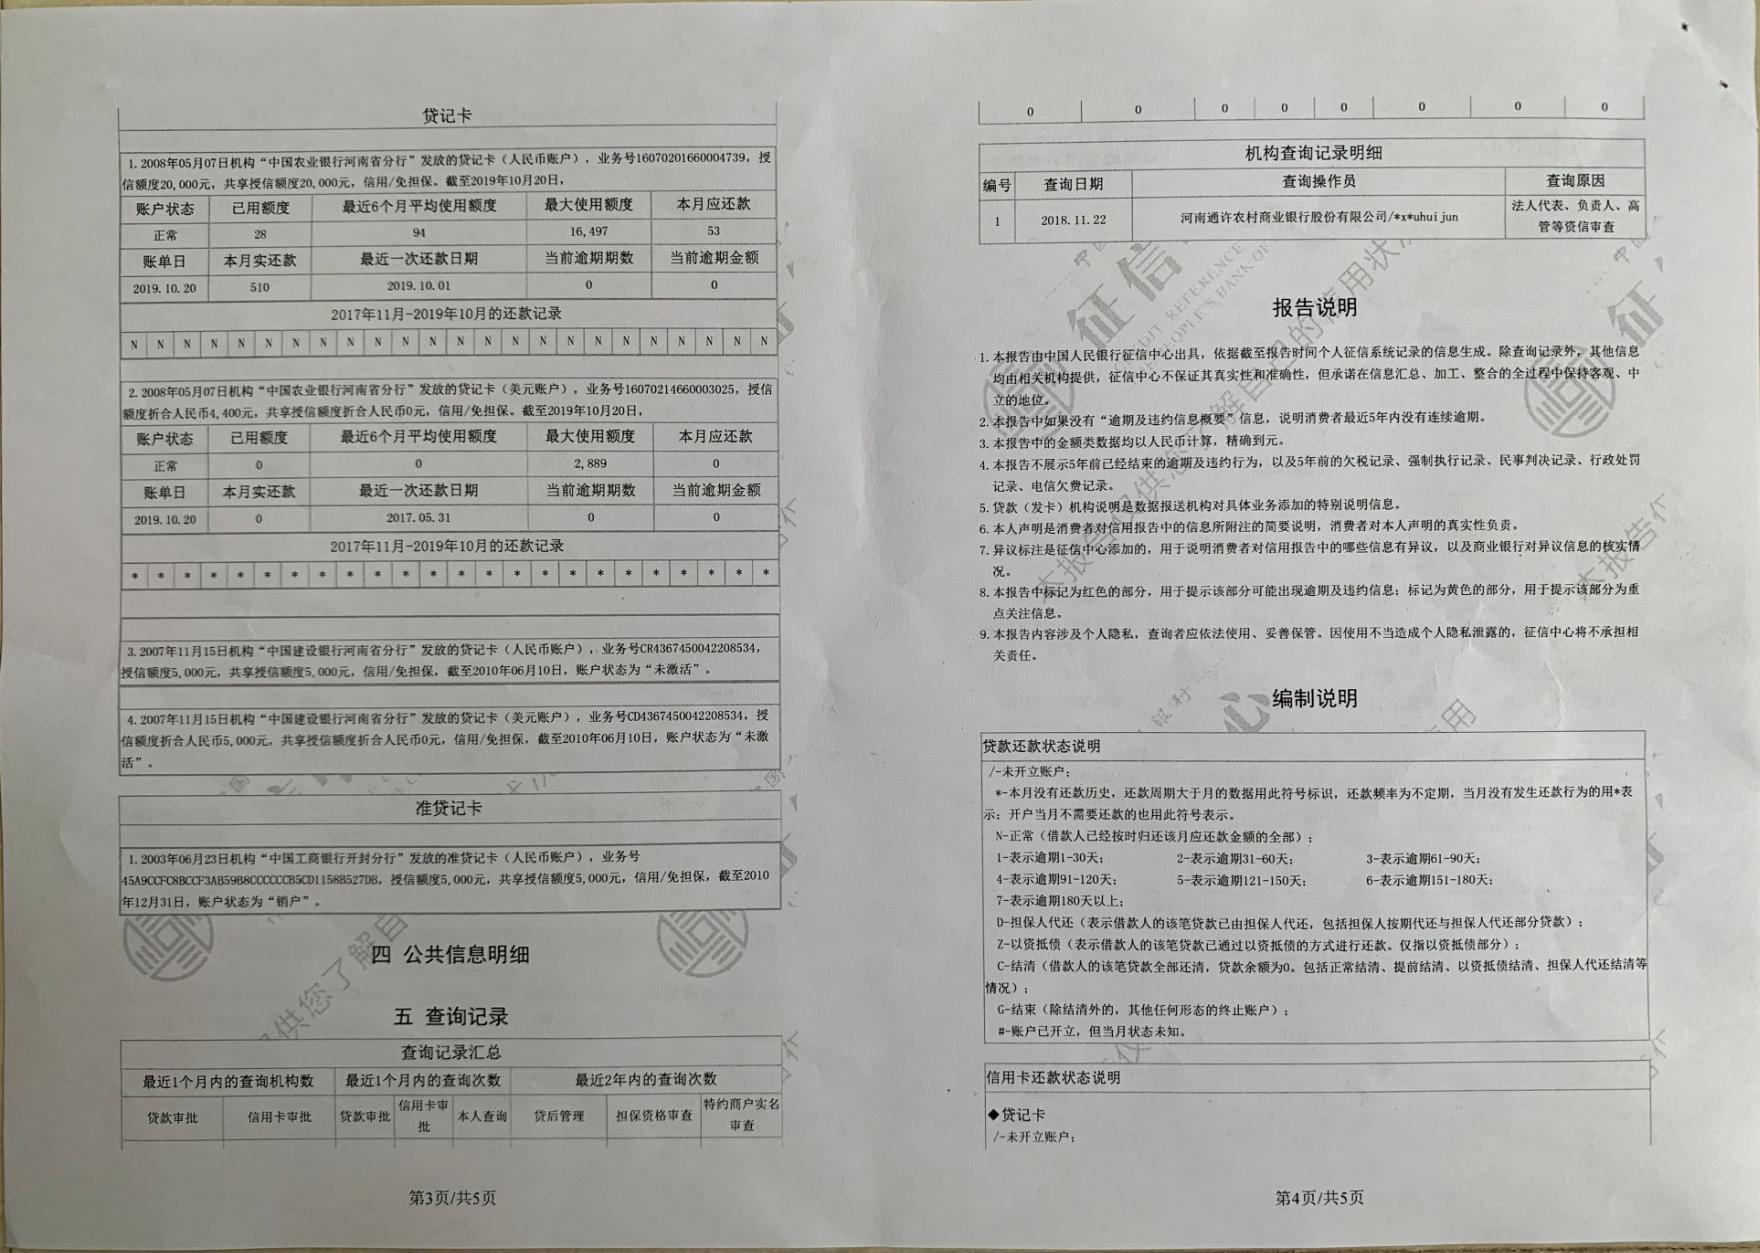 贷记卡
1. 2008年05月07日机构“中国农业银行河南省分行”发放的贷记卡（人民币账户），业务号16070201660004739，授
信额度20,000元，共享授信额度20,000元，信用/免担保。截至2019年10月20日，
账户状态 已用额度 最近6个月平均使用额度 最大使用额度 本月应还款
正常 28 94 16,497 53
账单日 本月实还款 最近一次还款日期 当前逾期期数 当前逾期金额
2019.10.20 510 2019.10.01 0 0
2017年11月-2019年10月的还款记录
N N N N N N N N N N N N N N N N N N N N N N N N
2. 2008年05月07日机构“中国农业银行河南省分行”发放的贷记卡（美元账户），业务号16070214660003025，授信
额度折合人民币4,400元，共享授信额度折合人民币0元，信用/免担保。截至2019年10月20日，
账户状态 已用额度 最近6个月平均使用额度 最大使用额度 本月应还款
正常 0 0 2,889 0
账单日 本月实还款 最近一次还款日期 当前逾期期数 当前逾期金额
2019.10.20 0 2017.05.31 0 0
2017年11月-2019年10月的还款记录
* * * * * * * * * * * * * * * * * * * * * * * *
3. 2007年11月15日机构“中国建设银行河南省分行”发放的贷记卡（人民币账户），业务号CR4367450042208534，
授信额度5,000元，共享授信额度5,000元，信用/免担保，截至2010年06月10日，账户状态为“未激活”。
4. 2007年11月15日机构“中国建设银行河南省分行”发放的贷记卡（美元账户），业务号CD4367450042208534，授
信额度折合人民币5,000元，共享授信额度折合人民币0元，信用/免担保，截至2010年06月10日，账户状态为“未激
活”。
准贷记卡
1. 2003年06月23日机构“中国工商银行开封分行”发放的准贷记卡（人民币账户），业务号
45A9CCFC8BCCF3AB59B8CCCCCCB5CD1158B527DB，授信额度5,000元，共享授信额度5,000元，信用/免担保，截至2010
年12月31日，账户状态为“销户”。
四 公共信息明细
五 查询记录
查询记录汇总
最近1个月内的查询机构数 最近1个月内的查询次数 最近2年内的查询次数
贷款审批 信用卡审批 贷款审批 信用卡审批 本人查询 贷后管理 担保资格审查 特约商户实名审查
第3页/共5页
0 0 0 0 0 0 0 0
机构查询记录明细
编号 查询日期 查询操作员 查询原因
1 2018.11.22 河南通许农村商业银行股份有限公司/*x*uhuijun 法人代表、负责人、高
管等资信审查
报告说明
1. 本报告由中国人民银行征信中心出具，依据截至报告时间个人征信系统记录的信息生成。除查询记录外，其他信息
均由相关机构提供，征信中心不保证其真实性和准确性，但承诺在信息汇总、加工、整合的全过程中保持客观、中
立的地位。
2. 本报告中如果没有“逾期及违约信息概要”信息，说明消费者最近5年内没有连续逾期。
3. 本报告中的金额类数据均以人民币计算，精确到元。
4. 本报告不展示5年前已经结束的逾期及违约行为，以及5年前的欠税记录、强制执行记录、民事判决记录、行政处罚
记录、电信欠费记录。
5. 贷款（发卡）机构说明是数据报送机构对具体业务添加的特别说明信息。
6. 本人声明是消费者对信用报告中的信息所附注的简要说明，消费者对本人声明的真实性负责。
7. 异议标注是征信中心添加的，用于说明消费者对信用报告中的哪些信息有异议，以及商业银行对异议信息的核实情
况。
8. 本报告中标记为红色的部分，用于提示该部分可能出现逾期及违约信息；标记为黄色的部分，用于提示该部分为重
点关注信息。
9. 本报告内容涉及个人隐私，查询者应依法使用、妥善保管。因使用不当造成个人隐私泄露的，征信中心将不承担相
关责任。
编制说明
贷款还款状态说明
/-未开立账户；
*-本月没有还款历史，还款周期大于月的数据用此符号标识，还款频率为不定期，当月没有发生还款行为的用*表
示；开户当月不需要还款的也用此符号表示。
N-正常（借款人已经按时归还该月应还款金额的全部）；
1-表示逾期1-30天； 2-表示逾期31-60天； 3-表示逾期61-90天；
4-表示逾期91-120天； 5-表示逾期121-150天； 6-表示逾期151-180天；
7-表示逾期180天以上；
D-担保人代还（表示借款人的该笔贷款已由担保人代还，包括担保人按期代还与担保人代还部分贷款）；
Z-以资抵债（表示借款人的该笔贷款已通过以资抵债的方式进行还款。仅指以资抵债部分）；
C-结清（借款人的该笔贷款全部还清，贷款余额为0。包括正常结清、提前结清、以资抵债结清、担保人代还结清等
情况）；
G-结束（除结清外的，其他任何形态的终止账户）；
#-账户已开立，但当月状态未知。
信用卡还款状态说明
◆贷记卡
/-未开立账户；
第4页/共5页